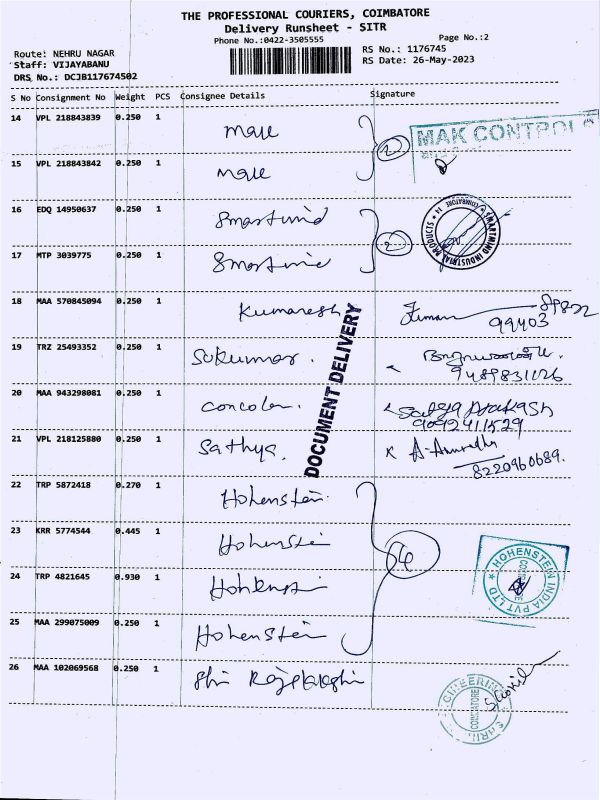 THE PROFESSIONAL COURIERS, COIMBATORE
Delivery Runsheet - SITR
Phone No.:0422-3505555
Page No.:2
Route: NEHRU NAGAR
RS No.: 1176745
Staff: VIJAYABANU
RS Date: 26-May-2023
DRS No.: DCJB117674502
S No Consignment No Weight PCS Consignee Details Signature
14 VPL 218843839 0.250 1
MAK CONTROL
15 VPL 218843842 0.250 1
2
16 EDQ 14950637 0.250 1 Smartmind
SMARTMIND INDUSTRIAL PRODUCTS
2
17 MTP 3039775 0.250 1 Smartmind
18 MAA 570845094 0.250 1 Kumaresh
99403
19 TRZ 25493352 0.250 1 Sukumar.
9489831126
DOCUMENT DELIVERY
20 MAA 943298081 0.250 1
Sathya Prakash
9092411529
21 VPL 218125880 0.250 1 Sathya. A-Anuradha
8220960689.
22 TRP 5872418 0.270 1 Hohenstein
23 KRR 5774544 0.445 1 Hohenstein
HOHENSTEIN INDIA PVT LTD
24 TRP 4821645 0.930 1 Hohenstein
25 MAA 299075009 0.250 1 Hohenstein
26 MAA 102069568 0.250 1
COIMBATORE